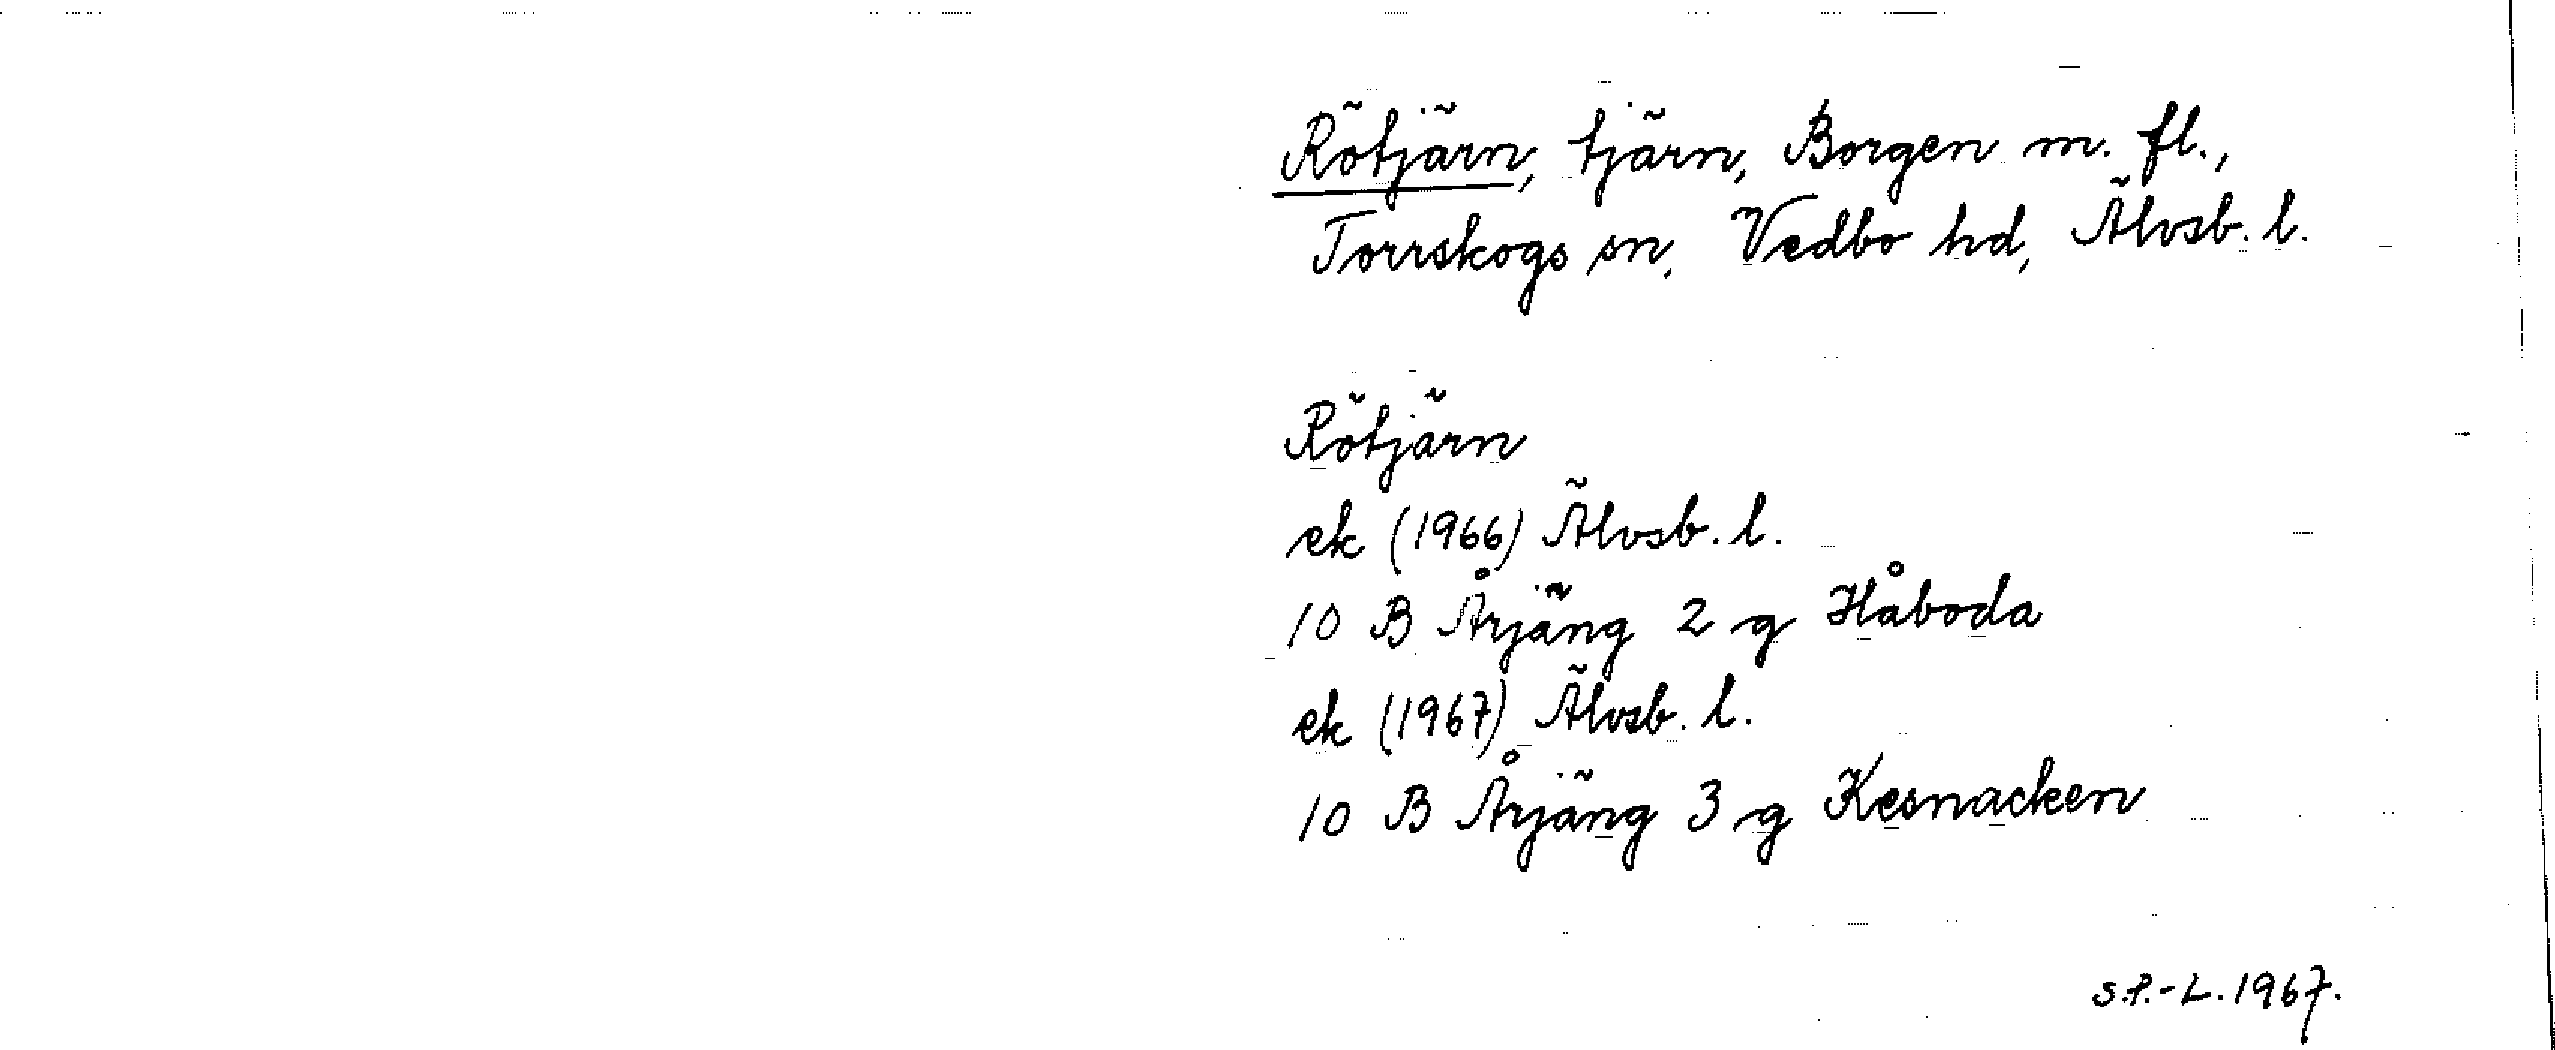 Rötjärn, tjärn, Borgen m. fl.,
Torrskogs sn, Vedbo hd, Älvsb. l.
Rötjärn
ek (1966) Älvsb. l.
10 B Årjäng 2 g Håboda
ek (1967) Älvsb. l.
10 B Årjäng 3 g Kesnacken
S.P.-L. 1967.